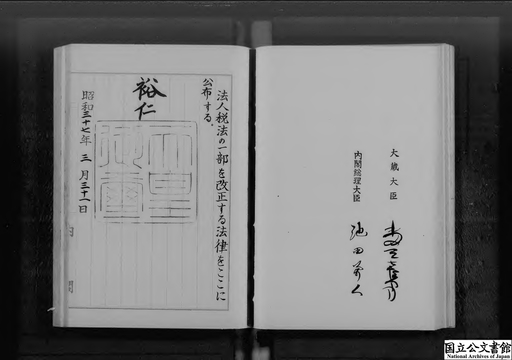 大蔵大臣
水田三喜男
内閣総理大臣
池田勇人
法人税法の一部を改正する法律をここに
公布する。
裕仁
天皇
御璽
昭和三十七年三月三十一日
国立公文書館
National Archives of Japan